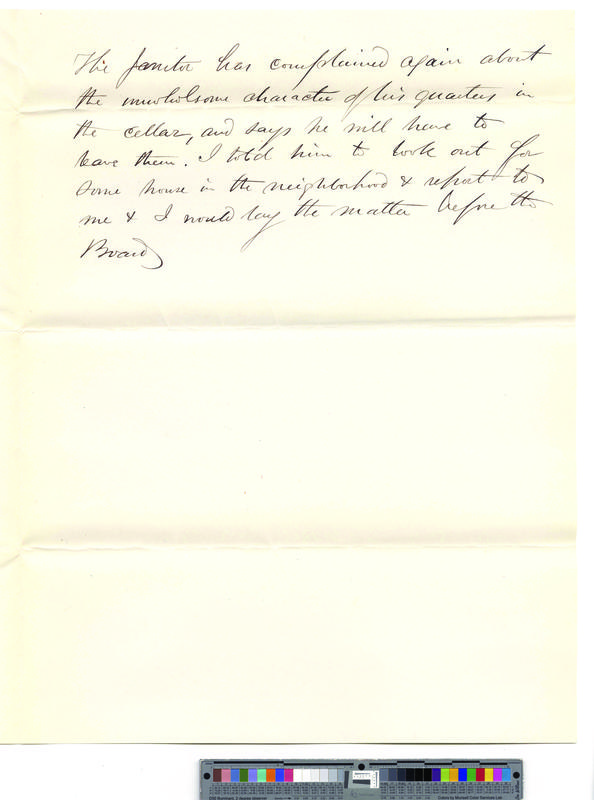 The Janitor has complained again about
the unwholsome character of his quarters in
the cellar, and says he will have to
leave them. I told him to look out for
some house in the neighborhood & report to
me & I would lay the matter before the
Board